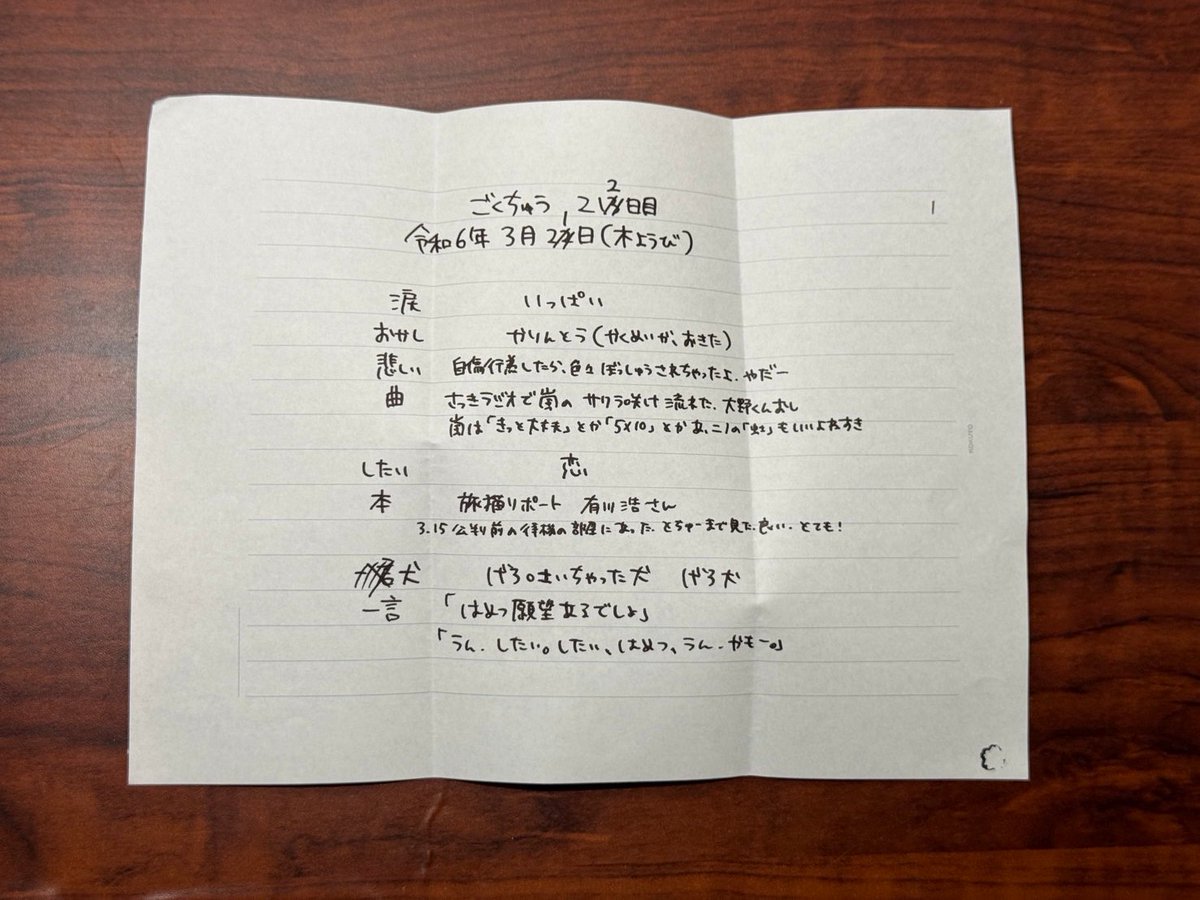 ごくちゅう 212日目
1
令和6年 3月 21日(木ようび)
涙 いっぱい
おかし かりんとう(かくめいが、おきた)
悲しい 自傷行為したら、色々 ぼっしゅうされちゃったよ. やだー
曲 さっきラジオで嵐の サクラ咲ケ 流れた. 大野くんおし
嵐は「きっと大丈夫」とか「5×10」とかあ、ニノの「虹」もいいよねすき
したい 恋
本 旅猫リポート 有川浩さん
3.15公判前の待機の部屋にあった. とちゅーまで見た. 良い. とても!
犬 げろ。はいちゃった犬 げろ犬
一言 「はめつ願望あるでしょ」
「うん. したい。したい、はめつ、うん. かもー。」
KOKUYO